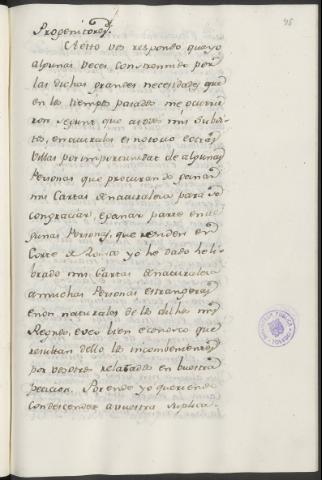 95
Progenitores.
A esto vos respondo que yo
algunas veces constreñido por
las dichas grandes necesidades que
en los tiempos pasados me ocurrie
ron segunt que a todos mis Subdi
tos, e naturales es notorio e otras
Vegadas por importunidat de algunas
Personas que procuraron de ganar
mis Cartas de naturaleza para se
congraciar, e ganar parte en al
gunas Personas, que residen en
Corte de Roma yo he dado he li
brado mis Cartas de naturaleza
a muchas Personas estrangeras
e non naturales de los dichos mis
Regnos, e veo bien e conozco que
resultan dello los inconvenientes
por vosotros relatados en vuestra
peticion. Por ende yo queriendo
condescender a vuestra suplica-